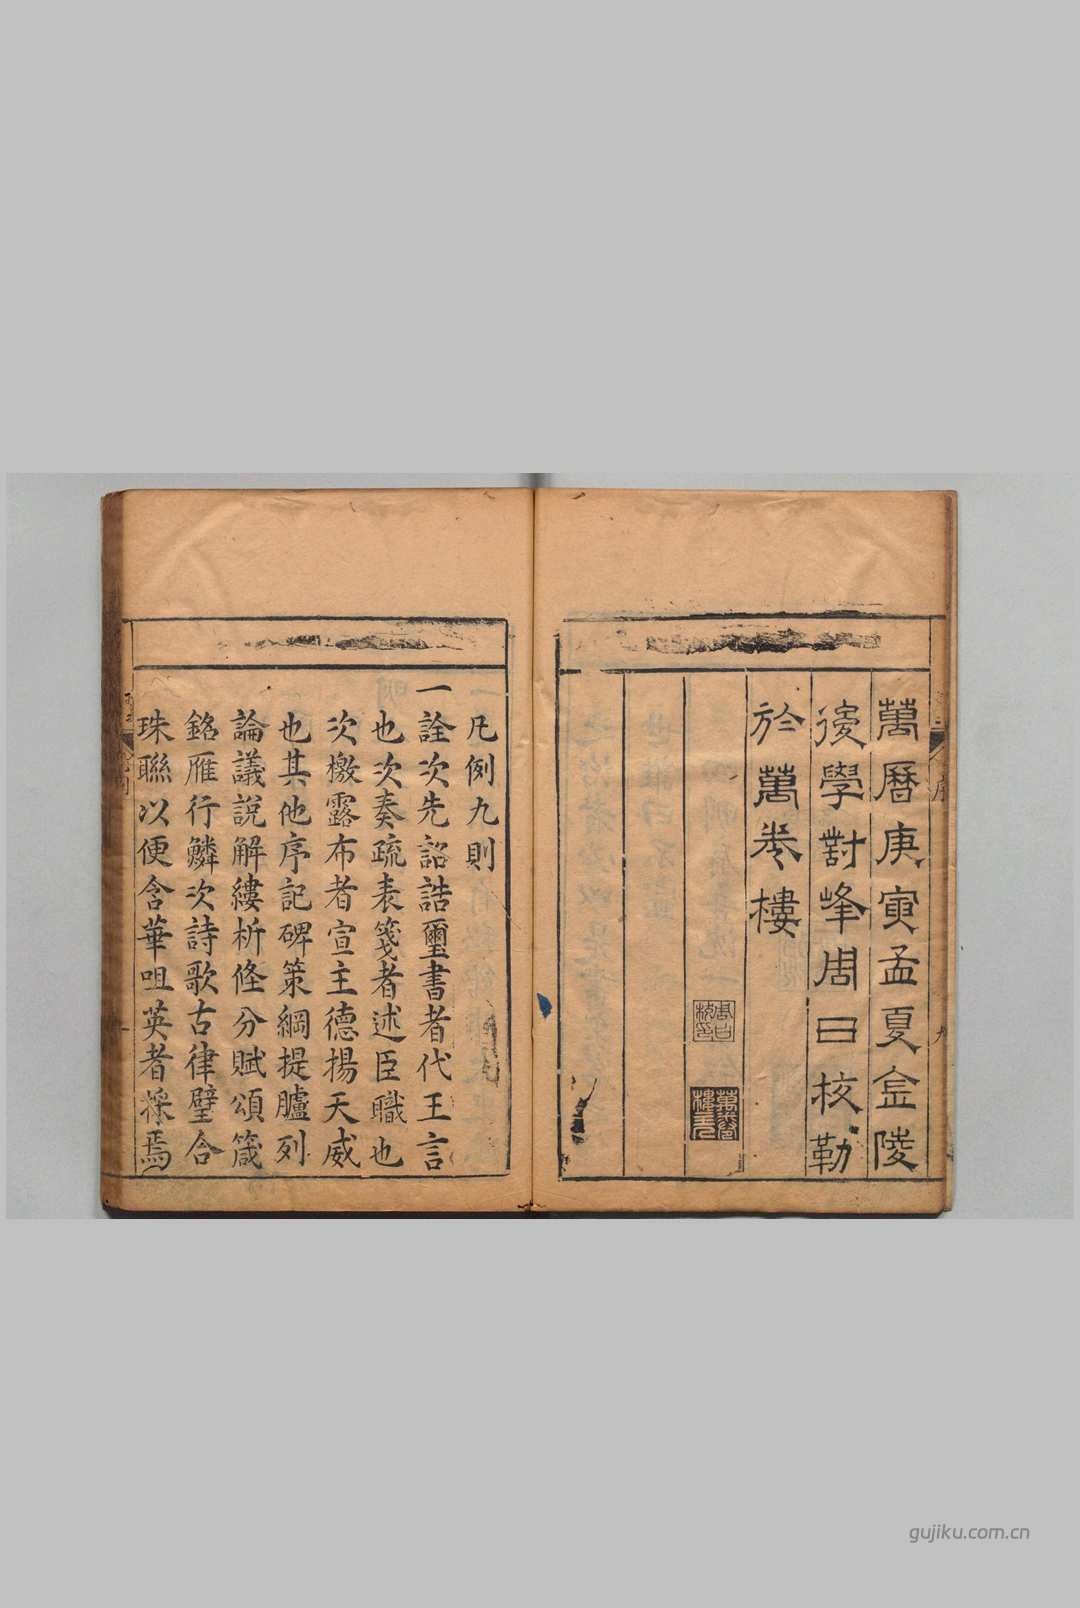 萬曆庚寅孟夏金陵
後學對峰周曰校勒
於萬卷樓
序
九
凡例九則
一詮次先詔誥璽書者代王言
也次奏疏表箋者述臣職也
次檄露布者宣主德揚天威
也其他序記碑策綱提臚列
論議說解縷析條分賦頌箴
銘雁行鱗次詩歌古律璧合
珠聯以便含華咀英者採焉
gujiku.com.cn